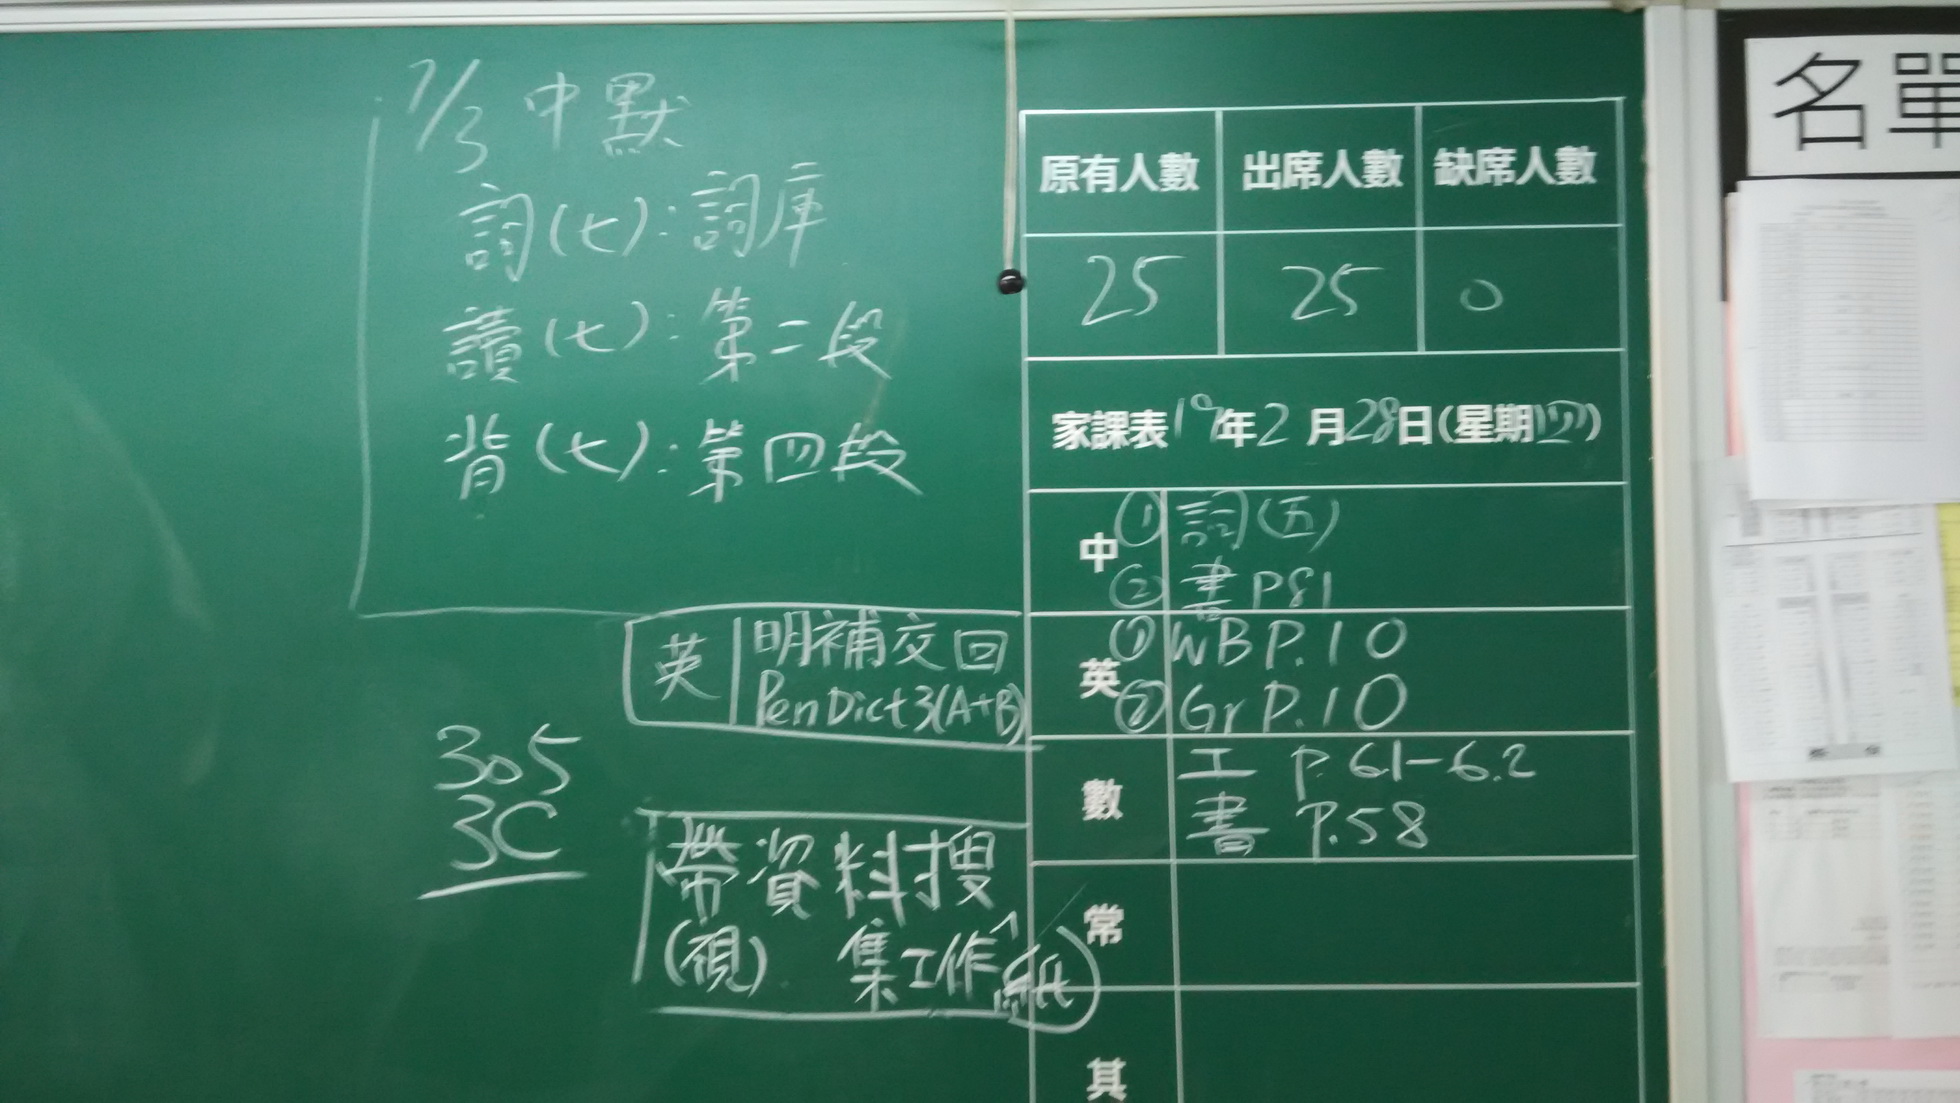 7/3 中默
詞(七):詞庫
讀(七):第二段
背(七):第四段
英 明補交回
Pen Dict 3(A+B)
305
3C
帶資料搜
(視) 集工作紙
原有人數 出席人數 缺席人數
25 25 0
家課表19年2月28日(星期四)
中 ① 詞(五)
② 書 P81
英 ① WB P.10
② Gr P.10
數 工 P.6.1-6.2
書 P.58
常
其
名單